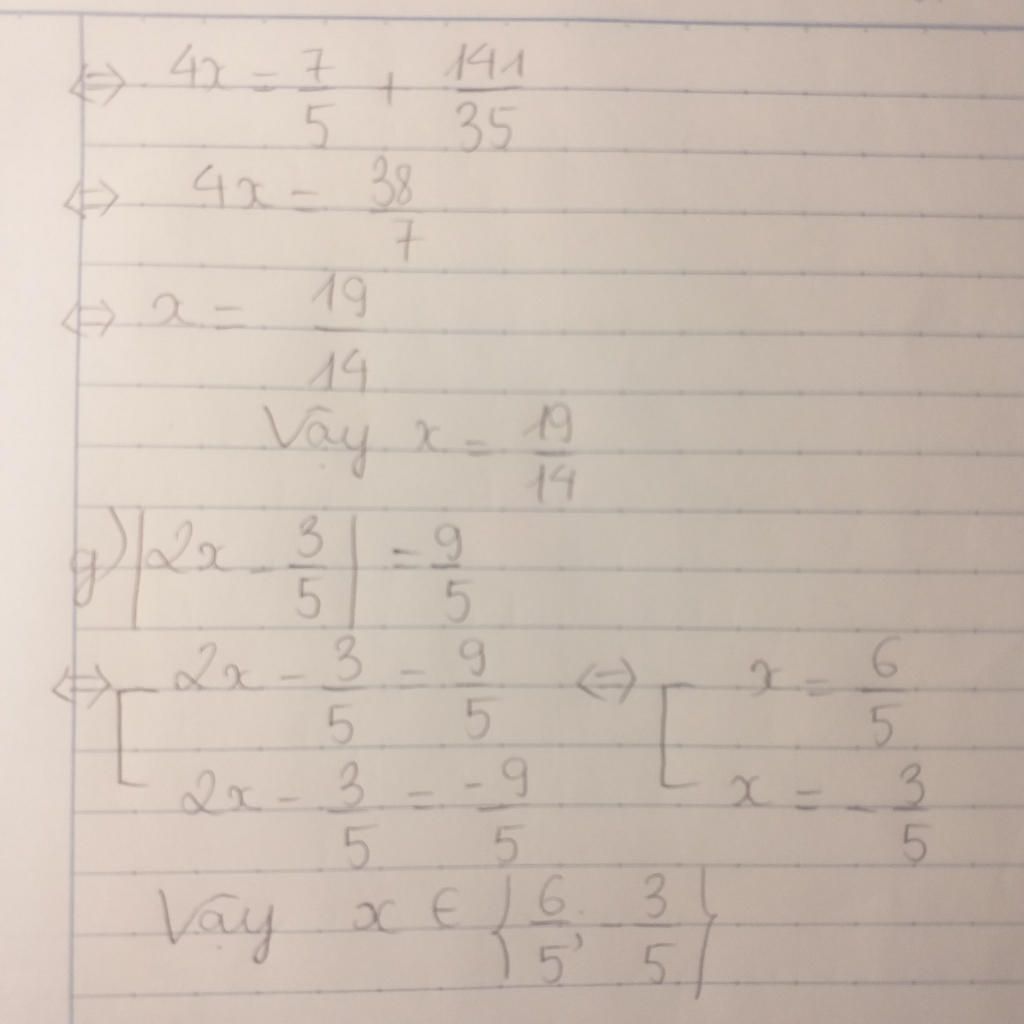 ⇔ 4x = 7/5 + 141/35
⇔ 4x = 38/7
⇔ x = 19/14
Vậy x = 19/14
g) |2x - 3/5| = 9/5
⇔ [ 2x - 3/5 = 9/5 ⇔ [ x = 6/5
2x - 3/5 = -9/5 x = -3/5
Vậy x ∈ {6/5; -3/5}